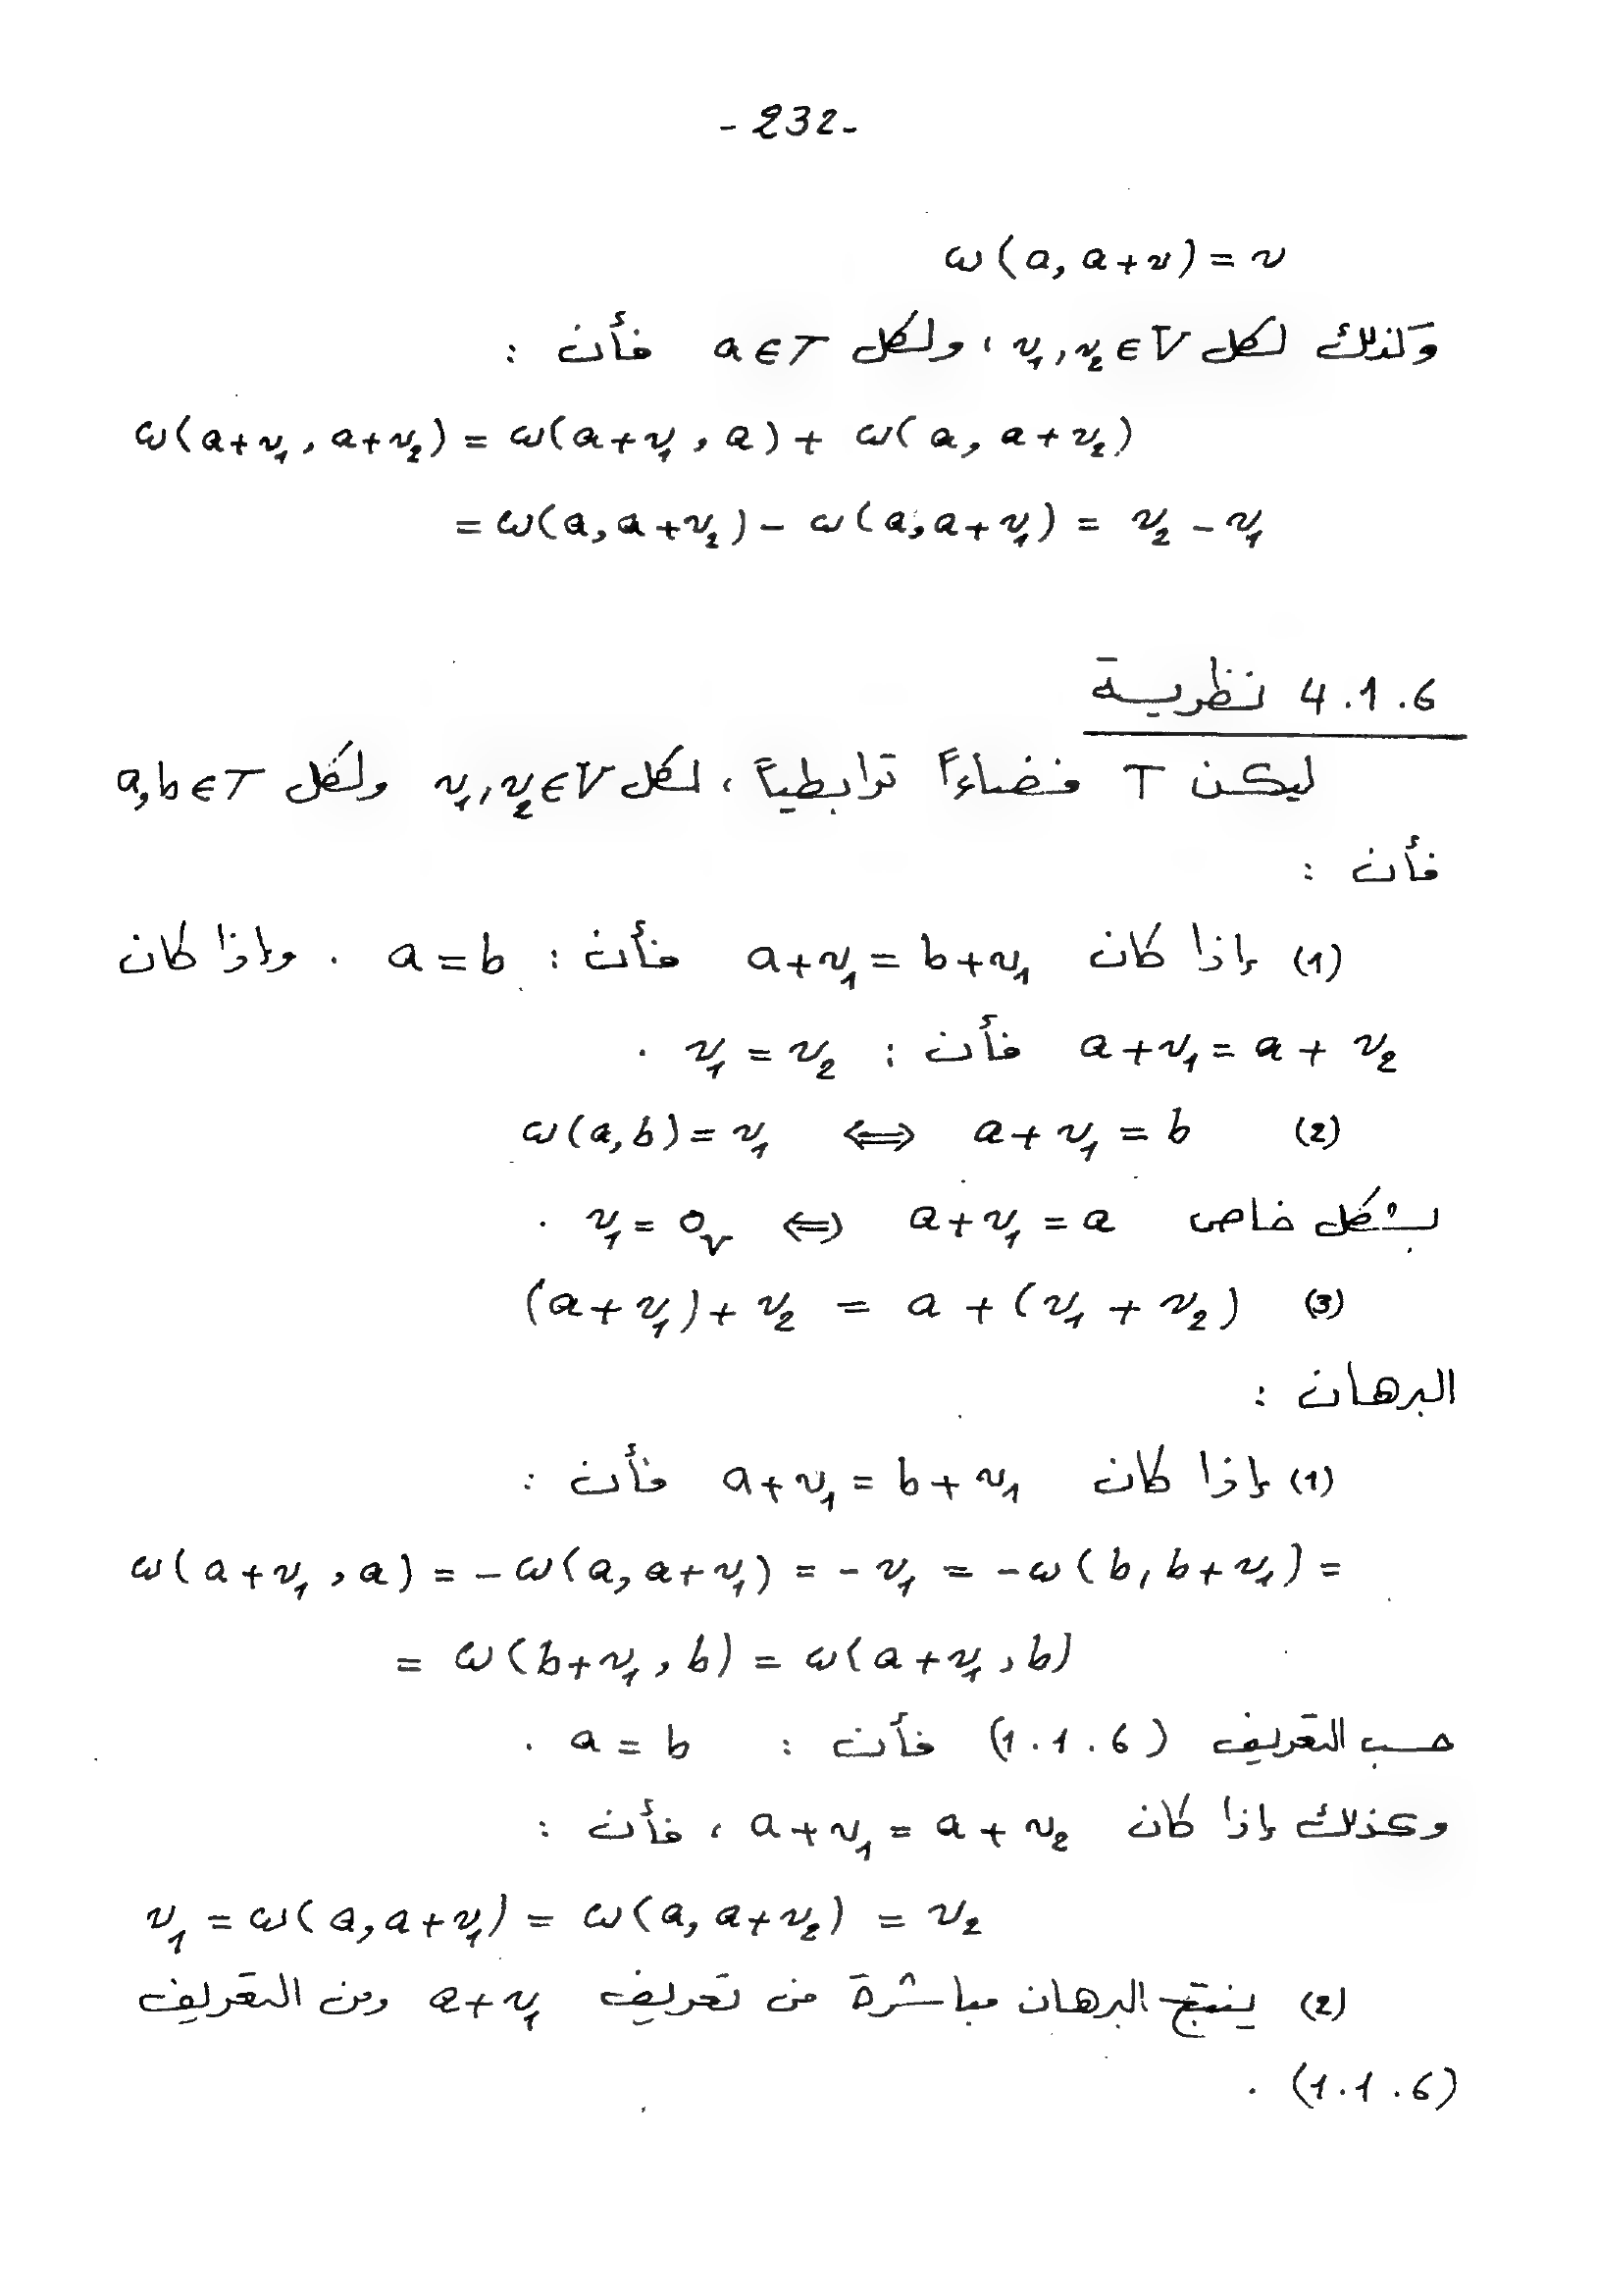 - 232 -
ω(a, a+v) = v
وكذلك لكل v₁, v₂ ∈ V ، ولكل a ∈ T فأن :
ω(a+v₁, a+v₂) = ω(a+v₁, a) + ω(a, a+v₂)
= ω(a, a+v₂) - ω(a, a+v₁) = v₂ - v₁
4.1.6 نظرية
ليكن T فضاءاً ترابطياً ، لكل v₁, v₂ ∈ V ولكل a, b ∈ T
فأن :
(1) إذا كان a+v₁ = b+v₁ فأن : a = b . وإذا كان
a+v₁ = a+v₂ فأن : v₁ = v₂ .
(2) a+v₁ = b ⟺ ω(a,b) = v₁
بشكل خاص a+v₁ = a ⟺ v₁ = 0ᵥ .
(3) (a+v₁)+v₂ = a+(v₁+v₂)
البرهان :
(1) إذا كان a+v₁ = b+v₁ فأن :
ω(a+v₁, a) = -ω(a, a+v₁) = -v₁ = -ω(b, b+v₁) =
= ω(b+v₁, b) = ω(a+v₁, b)
حسب التعريف (1.1.6) فأن : a = b .
وكذلك إذا كان a+v₁ = a+v₂ ، فأن :
v₁ = ω(a, a+v₁) = ω(a, a+v₂) = v₂
(2) ينتج البرهان مباشرة من تعريف a+v₁ ومن التعريف
(1.1.6) .